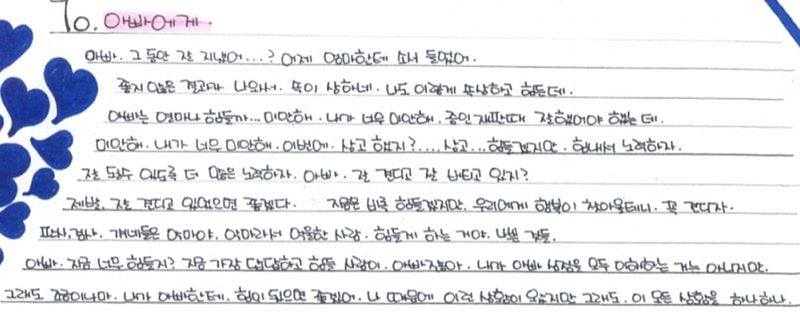 To. 아빠에게.
아빠. 그동안 잘 지냈어...? 어제 엄마한테 소식 들었어.
좋지 않은 결과가 나와서. 속이 상하네. 나도 이렇게 속상하고 힘든데.
아빠는 얼마나 힘들까... 미안해. 내가 너무 미안해. 증인 재판때 잘했어야 했는데.
미안해. 내가 너무 미안해. 이번에. 상고 했지?.... 상고... 힘들겠지만. 힘내서 노력하자.
잘 될수 있도록 더 많은 노력하자. 아빠. 잘 견디고 잘 버티고 있지?
제발. 잘 견디고 있었으면 좋겠다. 지금은 비록 힘들겠지만. 우리에게 행복이 찾아올테니. 꼭 견디자.
판사. 검사. 걔네들은 악마야. 악마라서 억울한 사람. 힘들게 하는 거야. 나쁜 것들.
아빠. 지금 너무 힘들지? 지금 가장 답답하고 힘들 사람이. 아빠잖아. 내가 아빠 심정을 모두 이해하는 거는 아니지만.
그래도 조금이나마. 내가 아빠한테. 힘이 되으면 좋겠어. 나 때문에 이런 상황이 왔지만 그래도. 이 모든 상황을 하나하나.